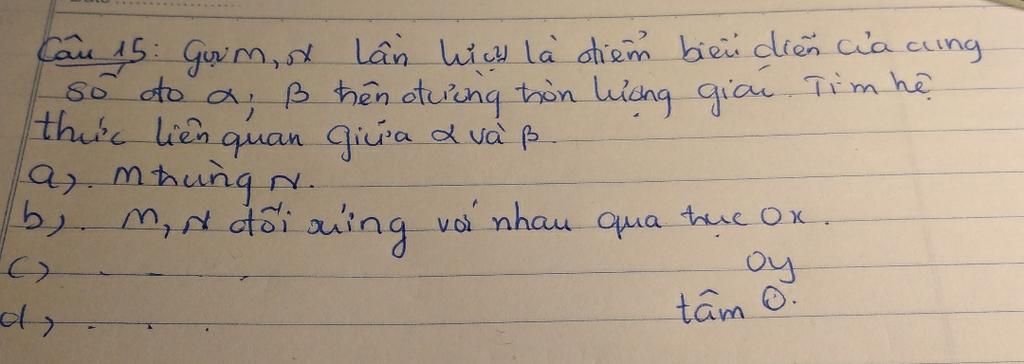 Câu 15: Gọi M, N lần lượt là điểm biểu diễn của cung
số đo α; β trên đường tròn lượng giác. Tìm hệ
thức liên quan giữa α và β.
a). M trùng N.
b). M, N đối xứng với nhau qua trục Ox.
c) . - - . Oy
d) . . . tâm O.